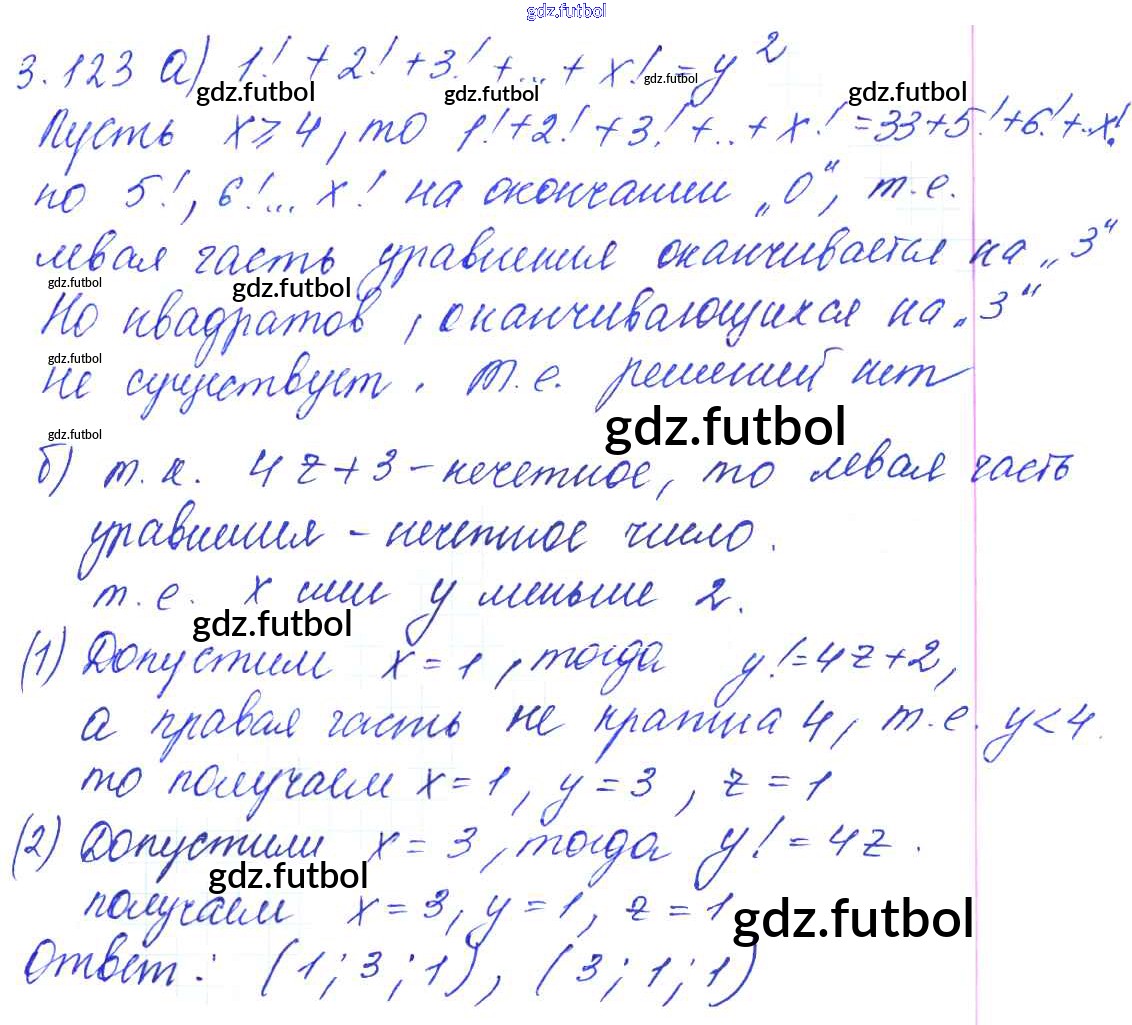 gdz.futbol
3.123 а) 1! + 2! + 3! + ... + x! = y²
gdz.futbol gdz.futbol gdz.futbol gdz.futbol
Пусть x ⩾ 4, то 1! + 2! + 3! + .. + x! = 33 + 5! + 6! + .. x!
но 5!, 6! ... x! на окончании „0“, т.е.
левая часть уравнения оканчивается на „3“
gdz.futbol gdz.futbol
Но квадратов, оканчивающихся на „3“
gdz.futbol
не существует. т.е. решений нет
gdz.futbol gdz.futbol
б) т.к. 4z + 3 – нечетное, то левая часть
уравнения – нечетное число.
т.е. x или y меньше 2.
gdz.futbol
(1) Допустим x = 1, тогда y! = 4z + 2,
а правая часть не кратна 4, т.е. y < 4.
то получаем x = 1, y = 3, z = 1
(2) Допустим x = 3, тогда y! = 4z.
gdz.futbol
получаем x = 3, y = 1, z = 1
gdz.futbol
Ответ: (1; 3; 1), (3; 1; 1)